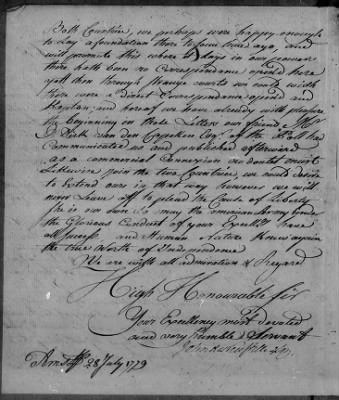 Both Countries, we perhaps were happy enough
to Lay a foundation there to some time ago, and
will promote this where days in our power
there hath been no Correspondance open'd there
yett then through Strange events we could with
there were a direct Correspondance opend and
and hereof we have already with pleasure
the beginning in these Letters our friend Mr
J. Derk van den Capellen Esqr. of the Poll had
Communicated us and published afterward
as a commercial Connexion we doubt omist
Likewise join the two Countries, we could desire
to Extend ours in that way however we will
never Leave off to plead the Cause of Liberty
she is our own So may the american Army under
the Glorious Conduct of your Excelly have
all success and Human Nature Know again
the true Worth of Independence
We are with all admiration & Regard
High Honourable Sir
Your Excellency most devoted
and very humble Servant
John
Amstm. 28 July 1779